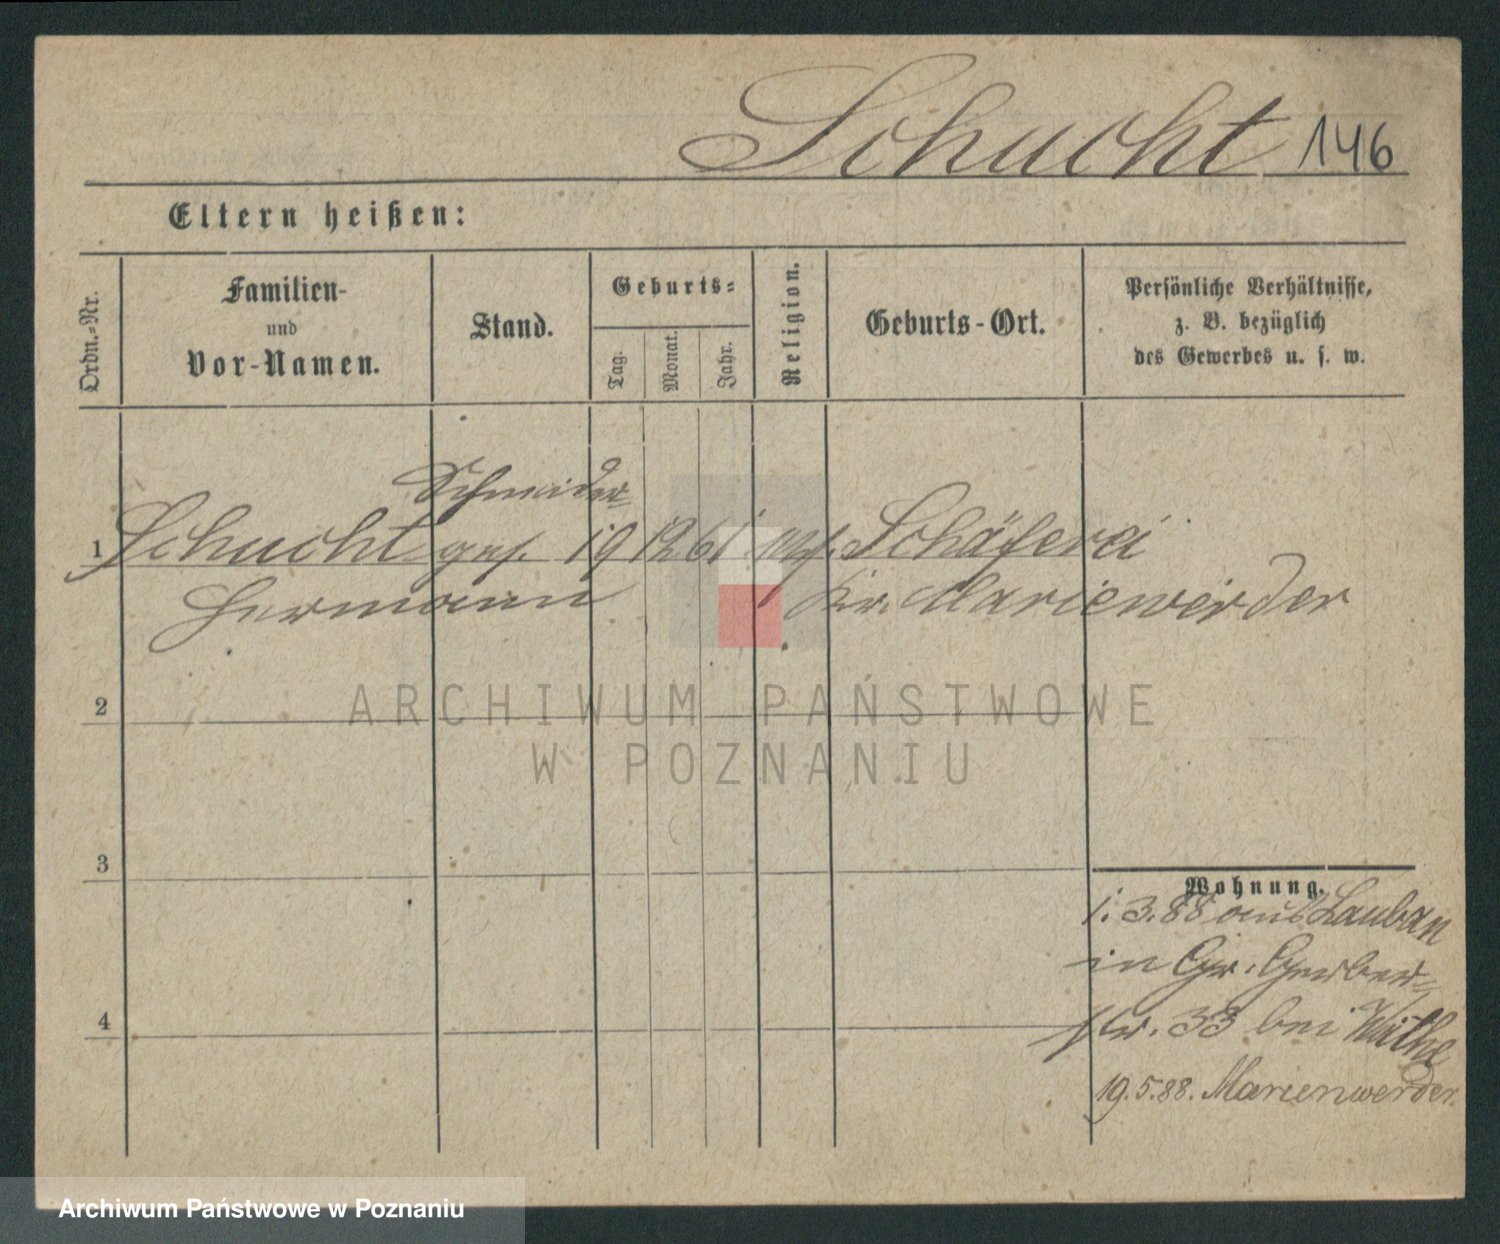 Schucht 146
Eltern heißen:
Ordn.-Nr.
Familien-
und
Vor-Namen.
Stand.
Geburts-
Tag.
Monat.
Jahr.
Religion.
Geburts-Ort.
Persönliche Verhältnisse,
z. B. bezüglich
des Gewerbes u. s. w.
Schneider-
1 Schucht ges. 19 12 61 Schäferei
Hermann Kr. Marienwerder
2
3
4
Wohnung.
1. 3. 88 aus Lauban
in Gr. Gerber-
str. 33 bei
19. 5. 88. Marienwerder.
ARCHIWUM PAŃSTWOWE
W POZNANIU
Archiwum Państwowe w Poznaniu